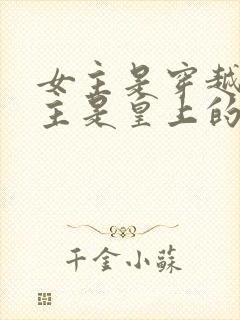 女主是穿越
主是皇上的
千金小蘇